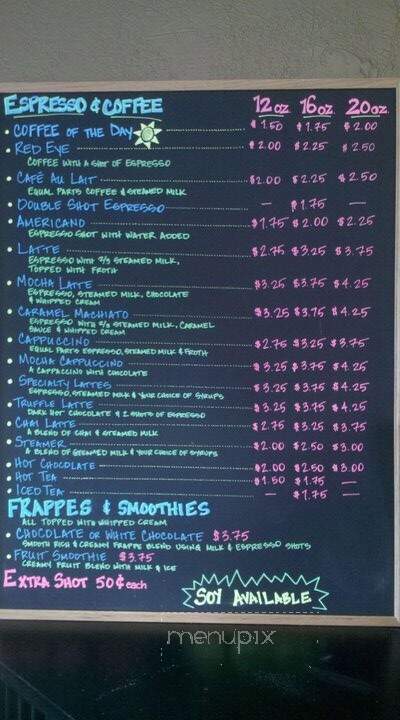 ESPRESSO & COFFEE 12 OZ. 16 OZ. 20 OZ.
• COFFEE OF THE DAY $1.50 $1.75 $2.00
• RED EYE $2.00 $2.25 $2.50
COFFEE WITH A SHOT OF ESPRESSO
• CAFÉ AU LAIT $2.00 $2.25 $2.50
EQUAL PARTS COFFEE & STEAMED MILK
• DOUBLE SHOT ESPRESSO — $1.75 —
• AMERICANO $1.75 $2.00 $2.25
ESPRESSO SHOT WITH WATER ADDED
• LATTE $2.75 $3.25 $3.75
ESPRESSO WITH 2/3 STEAMED MILK,
TOPPED WITH FROTH
• MOCHA LATTE $3.25 $3.75 $4.25
ESPRESSO, STEAMED MILK, CHOCOLATE
& WHIPPED CREAM
• CARAMEL MACHIATO $3.25 $3.75 $4.25
ESPRESSO WITH 2/3 STEAMED MILK, CARAMEL
SAUCE & WHIPPED CREAM
• CAPPUCCINO $2.75 $3.25 $3.75
EQUAL PARTS ESPRESSO, STEAMED MILK & FROTH
• MOCHA CAPPUCCINO $3.25 $3.75 $4.25
A CAPPACCINO WITH CHOCOLATE
• SPECIALTY LATTES $3.25 $3.75 $4.25
ESPRESSO, STEAMED MILK & YOUR CHOICE OF SYRUPS
• TRUFFLE LATTE $3.25 $3.75 $4.25
DARK HOT CHOCOLATE & 2 SHOTS OF ESPRESSO
• CHAI LATTE $2.75 $3.25 $3.75
A BLEND OF CHAI & STEAMED MILK
• STEAMER $2.00 $2.50 $3.00
A BLEND OF STEAMED MILK & YOUR CHOICE OF SYRUPS
• HOT CHOCOLATE $2.00 $2.50 $3.00
• HOT TEA $1.50 $1.75 —
• ICED TEA — $1.75 —
FRAPPES & SMOOTHIES
ALL TOPPED WITH WHIPPED CREAM
• CHOCOLATE OR WHITE CHOCOLATE $3.75
SMOOTH RICH & CREAMY FRAPPE BLEND USING MILK & ESPRESSO SHOTS
• FRUIT SMOOTHIE $3.75
CREAMY FRUIT BLEND WITH MILK & ICE
EXTRA SHOT 50¢ each
SOY AVAILABLE
menupix